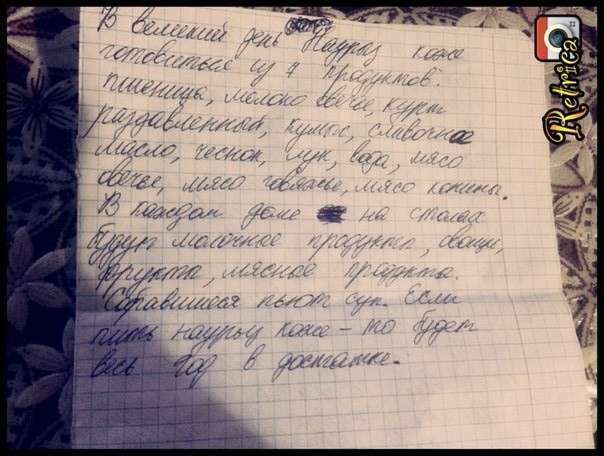 В великий день Наурыз коже
готовиться из 7 продуктов:
пшеница, молоко овечье, курт
раздавленный, кумыс, сливочное
масло, чеснок, лук, вода, мясо
овечье, мясо говяжье, мясо конины.
В каждом доме на столах
будут молочные продукты, овощи,
фрукты, мясные продукты.
Собравшиеся пьют суп. Если
пить наурыз коже - то будет
весь год в достатке.
Retrica